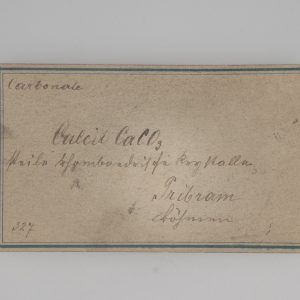 Carbonate
Calcit CaCO3
steile rhomboedrische Krystalle
Pribram
Böhmen
327